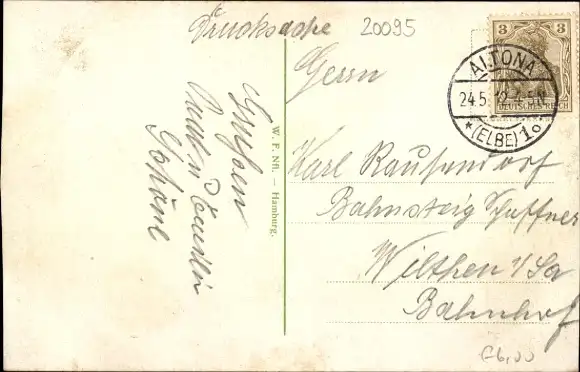 Drucksache
20095
3
DEUTSCHES REICH
ALTONA
24.5.12.4-5N
*(ELBE)1o
Herrn
Karl Rausendorf
Bahnsteig Schaffner
Wilthen i/Sa
Bahnhof
W. F. Nfl. — Hamburg.
Grüßen
Paul u